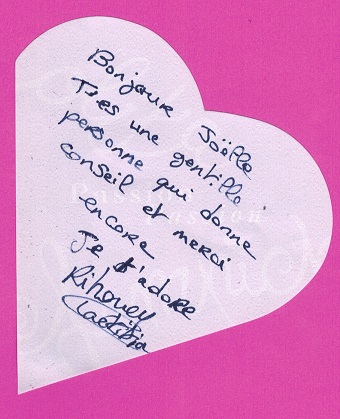 Bonjour Joëlle
T'es une gentille
personne qui donne
conseil et merci
encore
Je t'adore
Laetitia